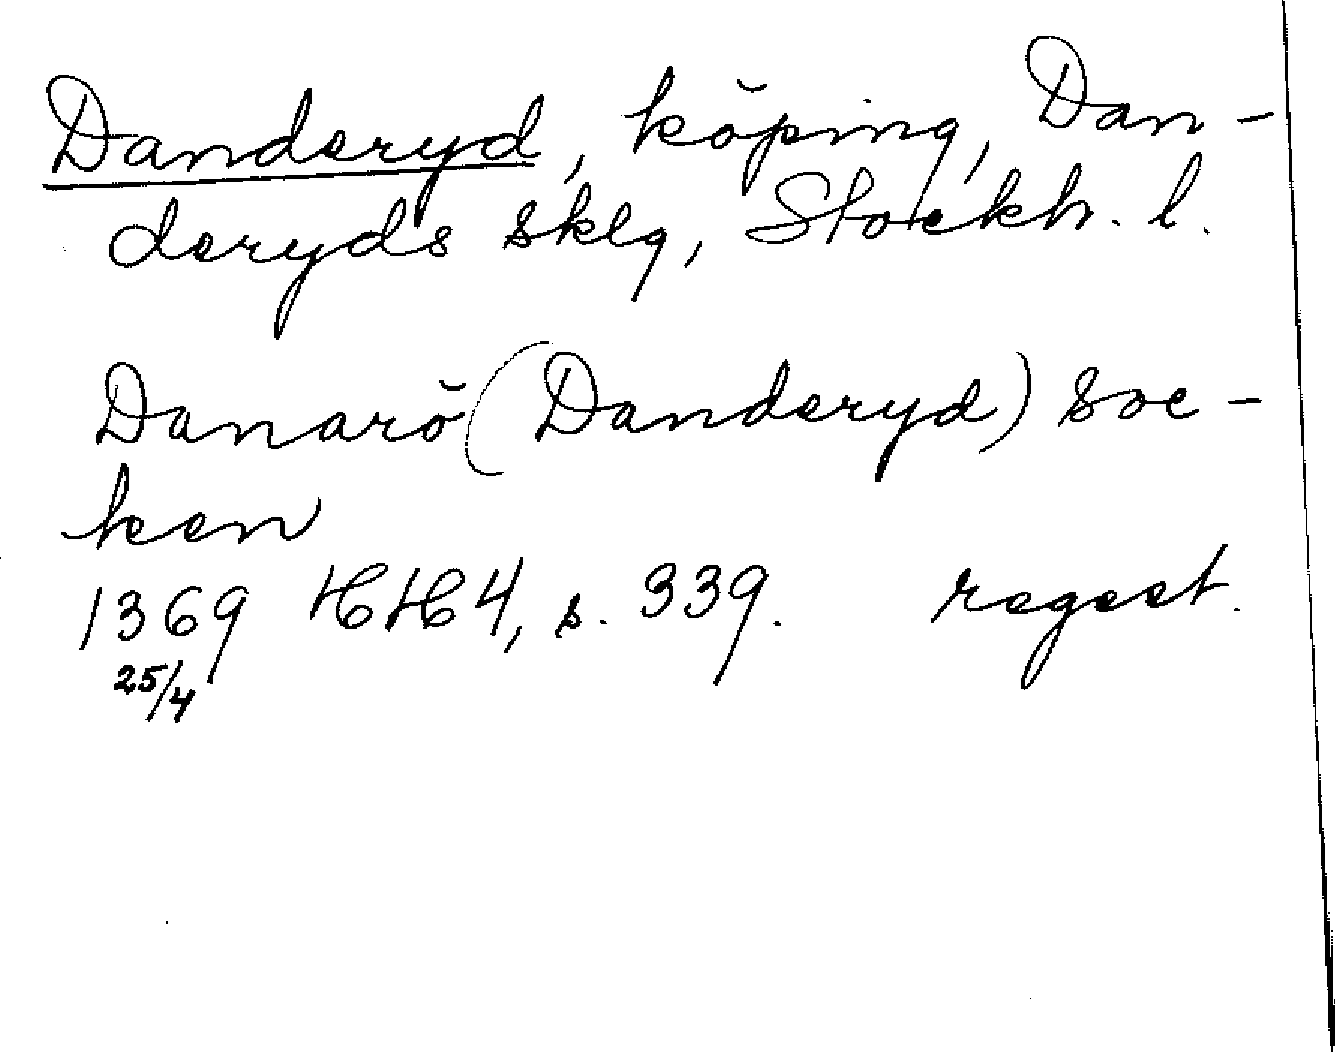 Danderyd, köping, Dan-
deryds sklg, Stockh. l.
Danarö (Danderyd) soc-
ken
1369 HH 4, s. 339. regest.
25/4